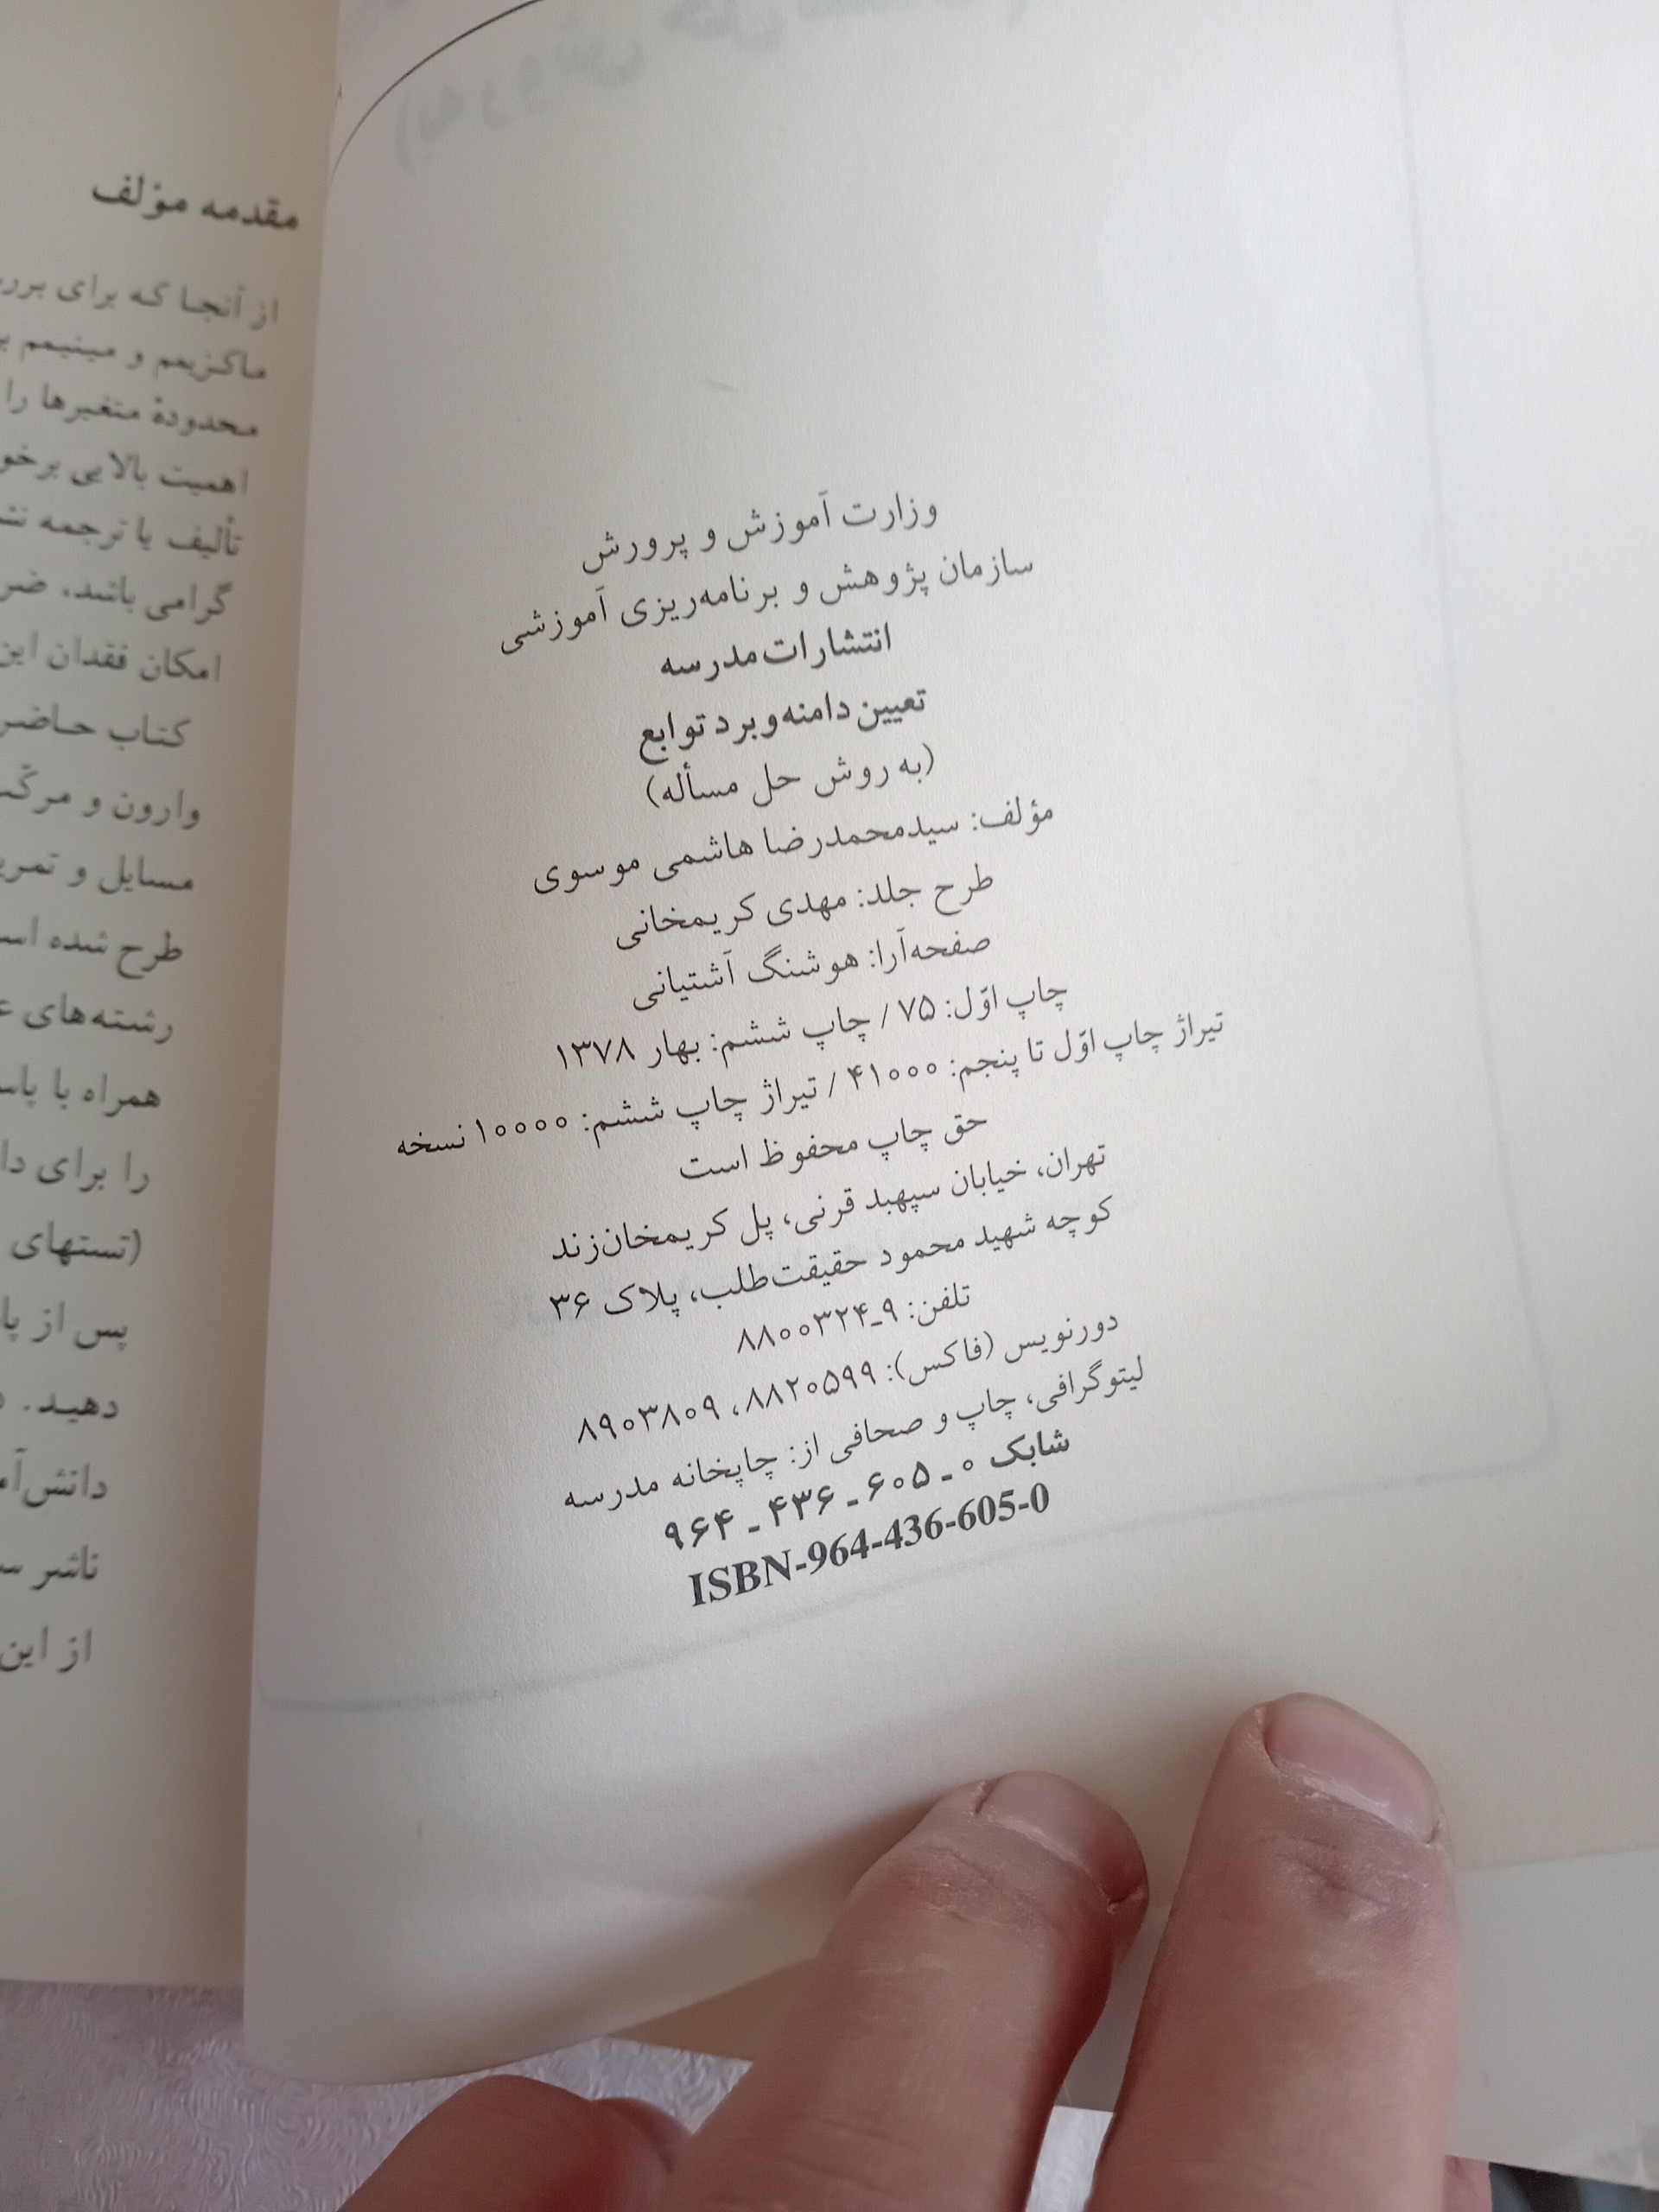 وزارت آموزش و پرورش
سازمان پژوهش و برنامه‌ریزی آموزشی
انتشارات مدرسه
تعیین دامنه و برد توابع
(به روش حل مسأله)
مؤلف: سیدمحمدرضا هاشمی موسوی
طرح جلد: مهدی کریمخانی
صفحه‌آرا: هوشنگ آشتیانی
چاپ اوّل: ۷۵ / چاپ ششم: بهار ۱۳۷۸
تیراژ چاپ اوّل تا پنجم: ۴۱۰۰۰ / تیراژ چاپ ششم: ۱۰۰۰۰ نسخه
حق چاپ محفوظ است
تهران، خیابان سپهبد قرنی، پل کریمخان‌زند
کوچه شهید محمود حقیقت‌طلب، پلاک ۳۶
تلفن: ۹ـ۸۸۰۰۳۲۴
دورنویس (فاکس): ۸۸۲۰۵۹۹، ۸۹۰۳۸۰۹
لیتوگرافی، چاپ و صحافی از: چاپخانه مدرسه
شابک ۰ ـ ۶۰۵ ـ ۴۳۶ ـ ۹۶۴
ISBN-964-436-605-0
مقدمه مؤلف
از آنجا که برای
ماکزیمم و مینیمم
محدودهٔ متغیرها را
اهمیت بالایی
تألیف یا ترجمه
گرامی باشد.
امکان فقدان این
کتاب حاضر
وارون و
مسایل و
طرح شده
رشته‌های
همراه با
را برای
(تستهای
پس از
دهید.
ناشر
از این